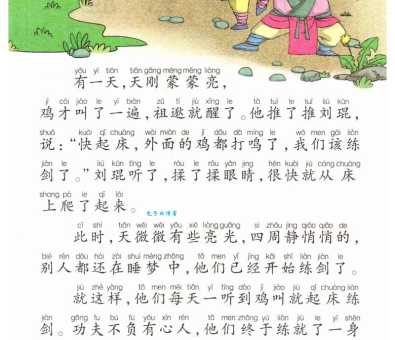 yǒu yì tiān tiān gāng méng méng liàng
有一天,天刚蒙蒙亮,
jī cái jiào le yí biàn zǔ tì jiù xǐng le tā tuī le tuī liú kūn
鸡才叫了一遍,祖逖就醒了。他推了推刘琨,
shuō kuài qǐ chuáng wài miàn de jī dōu dǎ míng le wǒ men gāi liàn
说:“快起床,外面的鸡都打鸣了,我们该练
jiàn le liú kūn tīng le róu le róu yǎn jing hěn kuài jiù cóng chuáng
剑了。”刘琨听了,揉了揉眼睛,很快就从床
shang pá le qǐ lái
上爬了起来。
cǐ shí tiān wēi wēi yǒu xiē liàng guāng sì zhōu jìng qiāo qiāo de
此时,天微微有些亮光,四周静悄悄的,
bié rén dōu hái zài shuì mèng zhōng tā men yǐ jīng kāi shǐ liàn jiàn le
别人都还在睡梦中,他们已经开始练剑了。
jiù zhè yàng tā men měi tiān yì tīng dào jī jiào jiù qǐ chuáng liàn
就这样,他们每天一听到鸡叫就起床练
jiàn gōng fu bú fù yǒu xīn rén tā men zhōng yú liàn jiù le yì shēn
剑。功夫不负有心人,他们终于练就了一身